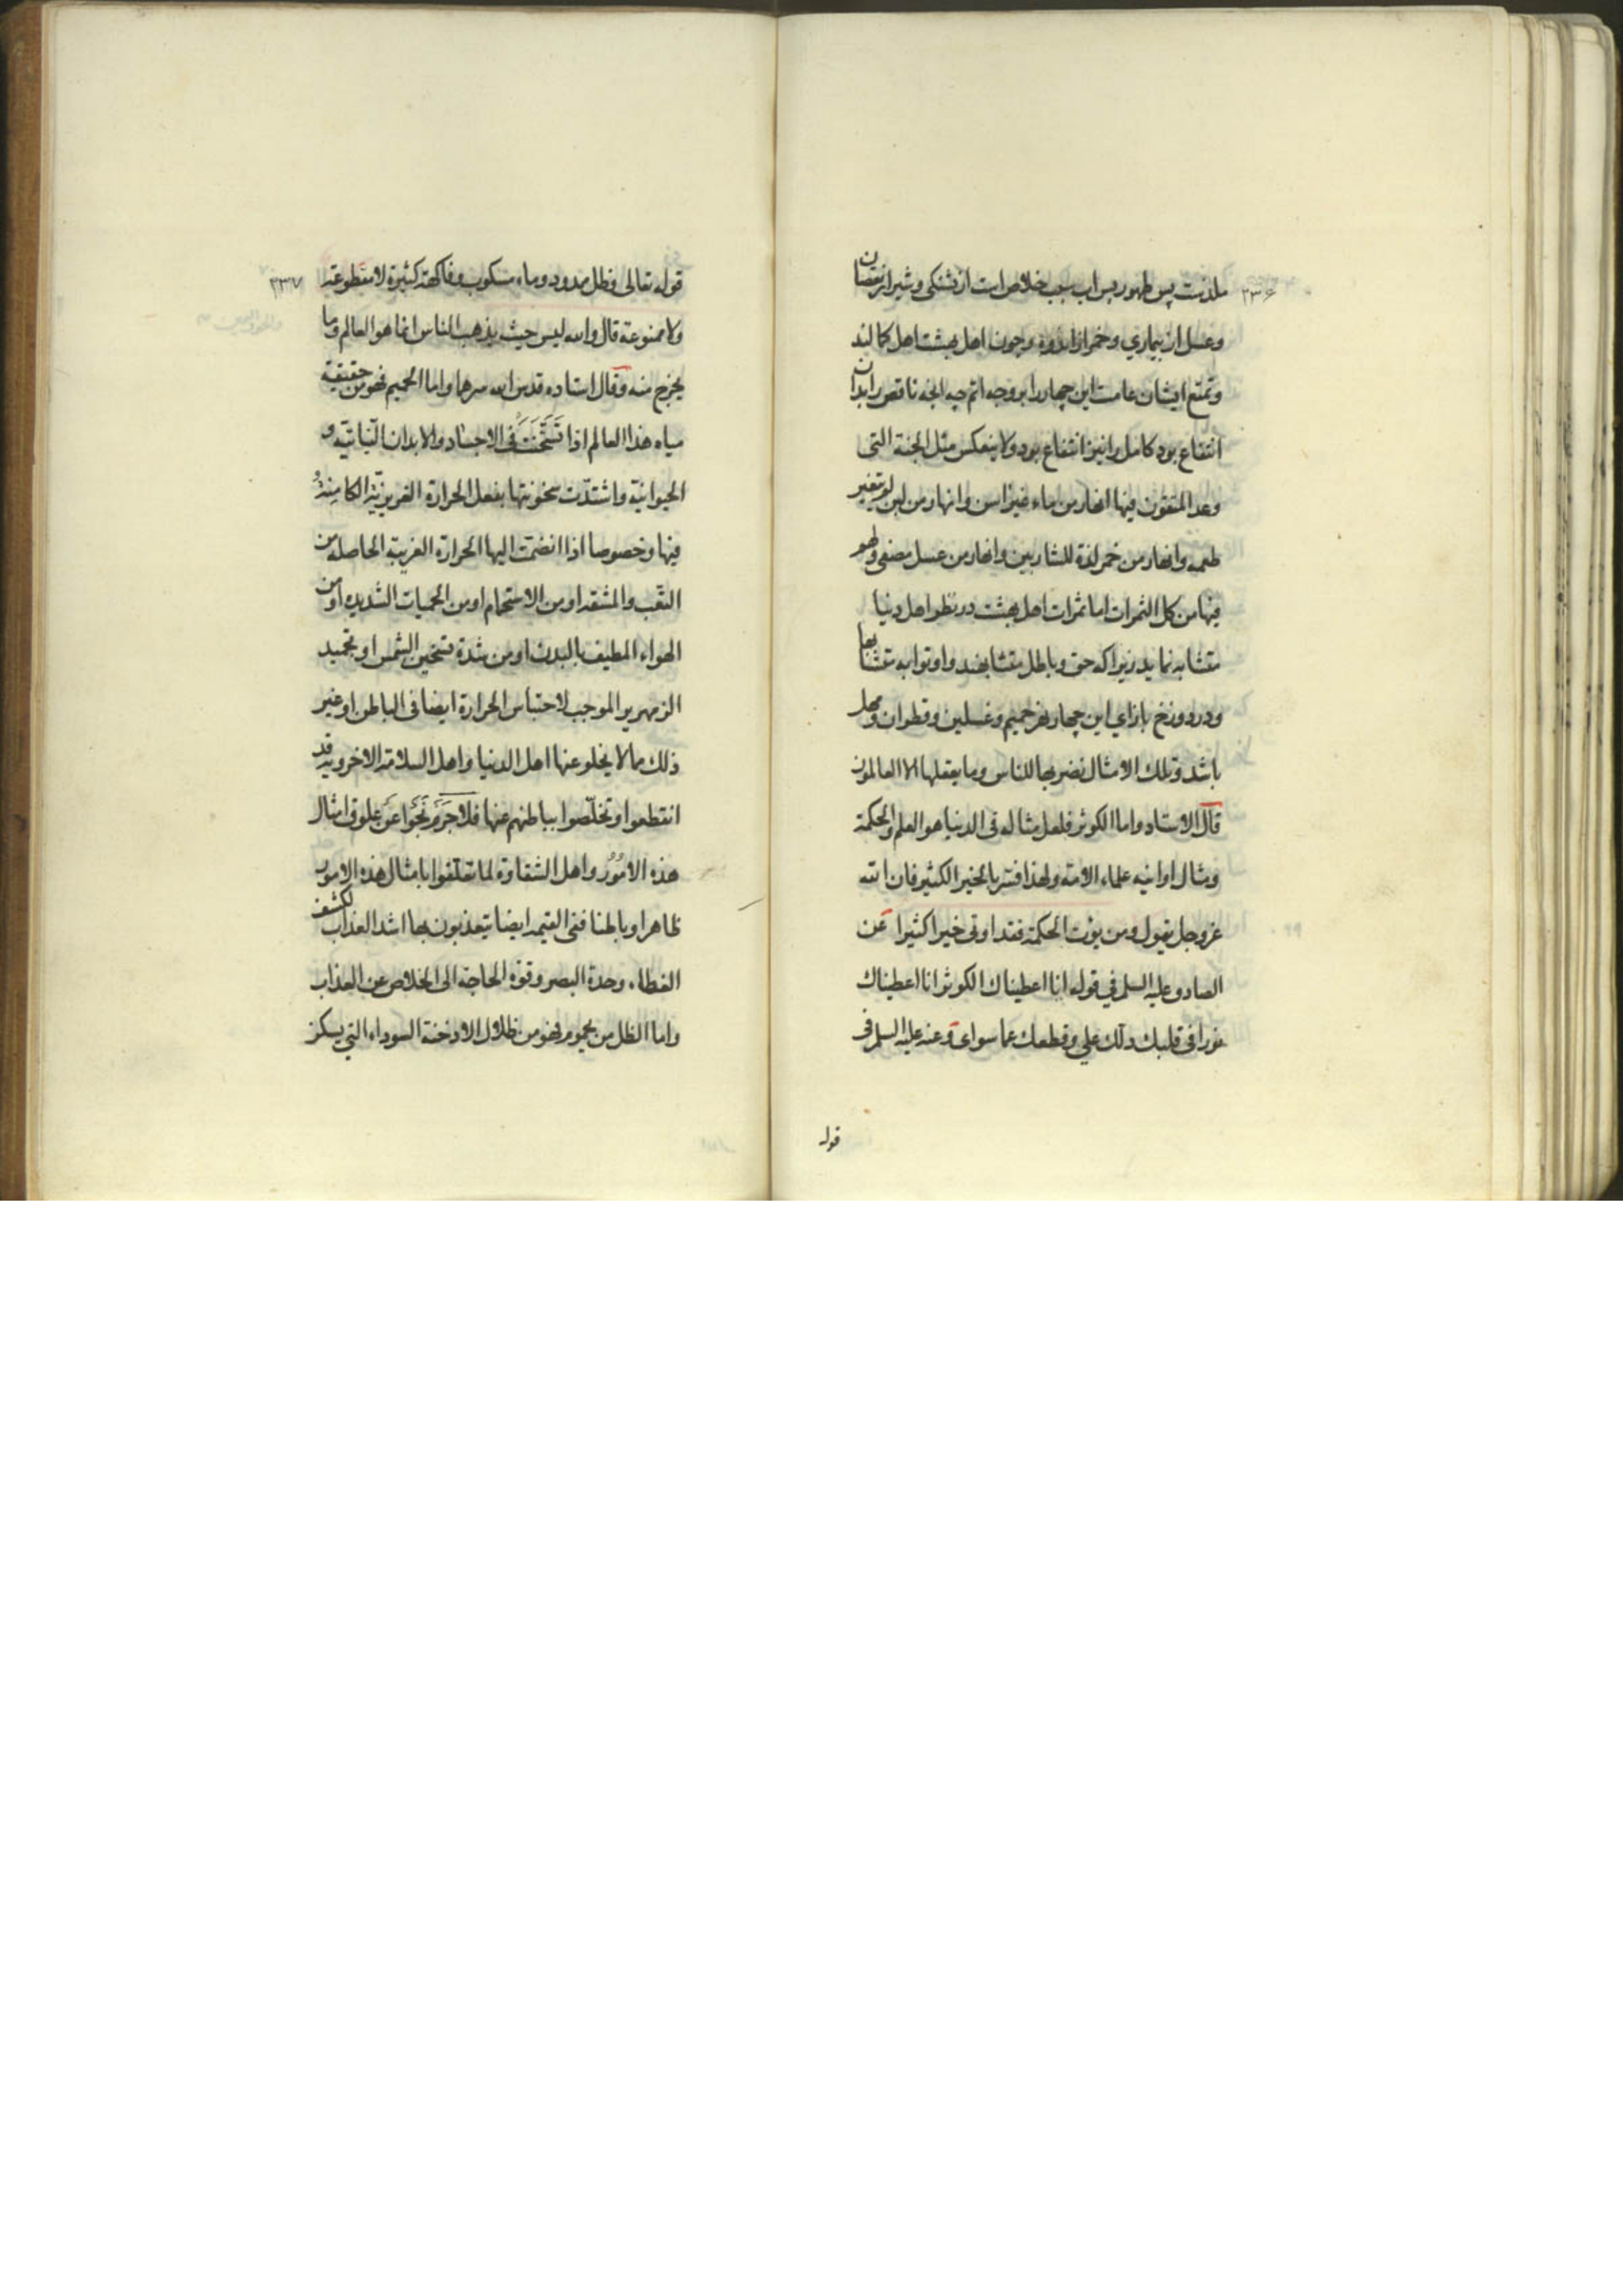 ۲۳۶
ملذنت پس طهور پس اب سبب خلاص است از تشنگی و شیر از نقصان
وعسل از بیماری و خمر از اندوه و چون اهل بهشت اهل کمالند
وتمتع ایشان عامست این چهار را بر وجه اتم چه انچه ناقص را بدان
انتفاع بود کامل را نیز انتفاع بود ولا ینعکس مثل الجنة التی
وعد المتقون فیها انهار من ماء غیر اسن وانهار من لبن لم یتغیر
طعمه وانهار من خمر لذة للشاربین وانهار من عسل مصفی ولهم
فیها من کل الثمرات اما ثمرات اهل بهشت در نظر اهل دنیا
متشابه نماید زیرا که حق و باطل متشابهند واوتوا به متشابها
ودر دوزخ بازای این چهار نهر حمیم وغسلین وقطران ومهل
باشد وتلک الامثال نضربها للناس وما یعقلها الا العالمون
قال الاستاد واما الکوثر فلعل مثاله فی الدنیا هو العلم والحکمة
ومثال اوانیه علماء الامة ولهذا فسر بالخیر الکثیر فان الله
عزوجل یقول ومن یؤت الحکمة فقد اوتی خیرا کثیرا عن
الصادق علیه السلم فی قوله انا اعطیناک الکوثر انا اعطیناک
نورا فی قلبک دلک علی وقطعک عما سوای وعنه علیه السلم فی
قوله
۲۳۷
قوله تعالی وظل ممدود وماء مسکوب وفاکهة کثیرة لا مقطوعة
ولا ممنوعة قال والله لیس حیث یذهب الناس انما هو العالم وما
یخرج منه وقال استاده قدس الله سرهما واما الحمیم فهو من حقیقة
میاه هذا العالم اذا تسخنت فی الاجساد والابدان النباتیة و
الحیوانیة واشتدت سخونتها بفعل الحرارة الغریزیة الکامنة
فیها وخصوصا اذا انضمت الیها الحرارة الغریبة الحاصلة من
التعب والمشقه او من الاستحمام او من الحمیات الشدیده او من
الهواء المطیف بالبدن او من شدة تسخین الشمس او تجمید
الزمهریر الموجب لاحتباس الحرارة ایضا فی الباطن او غیر
ذلک مما لا یخلو عنها اهل الدنیا واهل السلامة الاخرویه قد
انقطعوا وتخلصوا بباطنهم عنها فلا جرم نجوا عن علوق امثال
هذه الامور واهل الشقاوة لما تعلقوا بامثال هذه الامور
ظاهرا وباطنا ففی القیمه ایضا یتعذبون بها اشد العذاب لکشف
الغطاء وحدة البصر وقوة الحاجة الی الخلاص عن العذاب
واما الظل من یحموم فهو من ظلال الادخنة السوداء التی یسکن